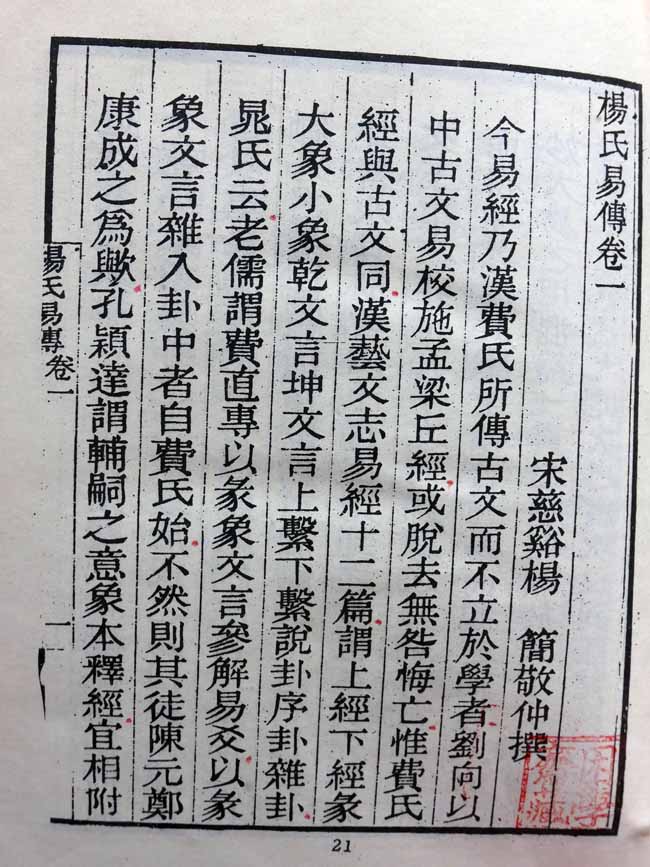 楊氏易傳卷一
宋慈谿楊　簡敬仲撰
今易經乃漢費氏所傳古文而不立於學者劉向以
中古文易校施孟梁丘經或脫去無咎悔亡惟費氏
經與古文同漢藝文志易經十二篇謂上經下經彖
大象小象乾文言坤文言上繫下繫說卦序卦雜卦
晁氏云老儒謂費直專以彖象文言參解易爻以彖
象文言雜入卦中者自費氏始不然則其徒陳元鄭
康成之爲歟孔穎達謂輔嗣之意象本釋經宜相附
楊氏易傳卷一
一
21